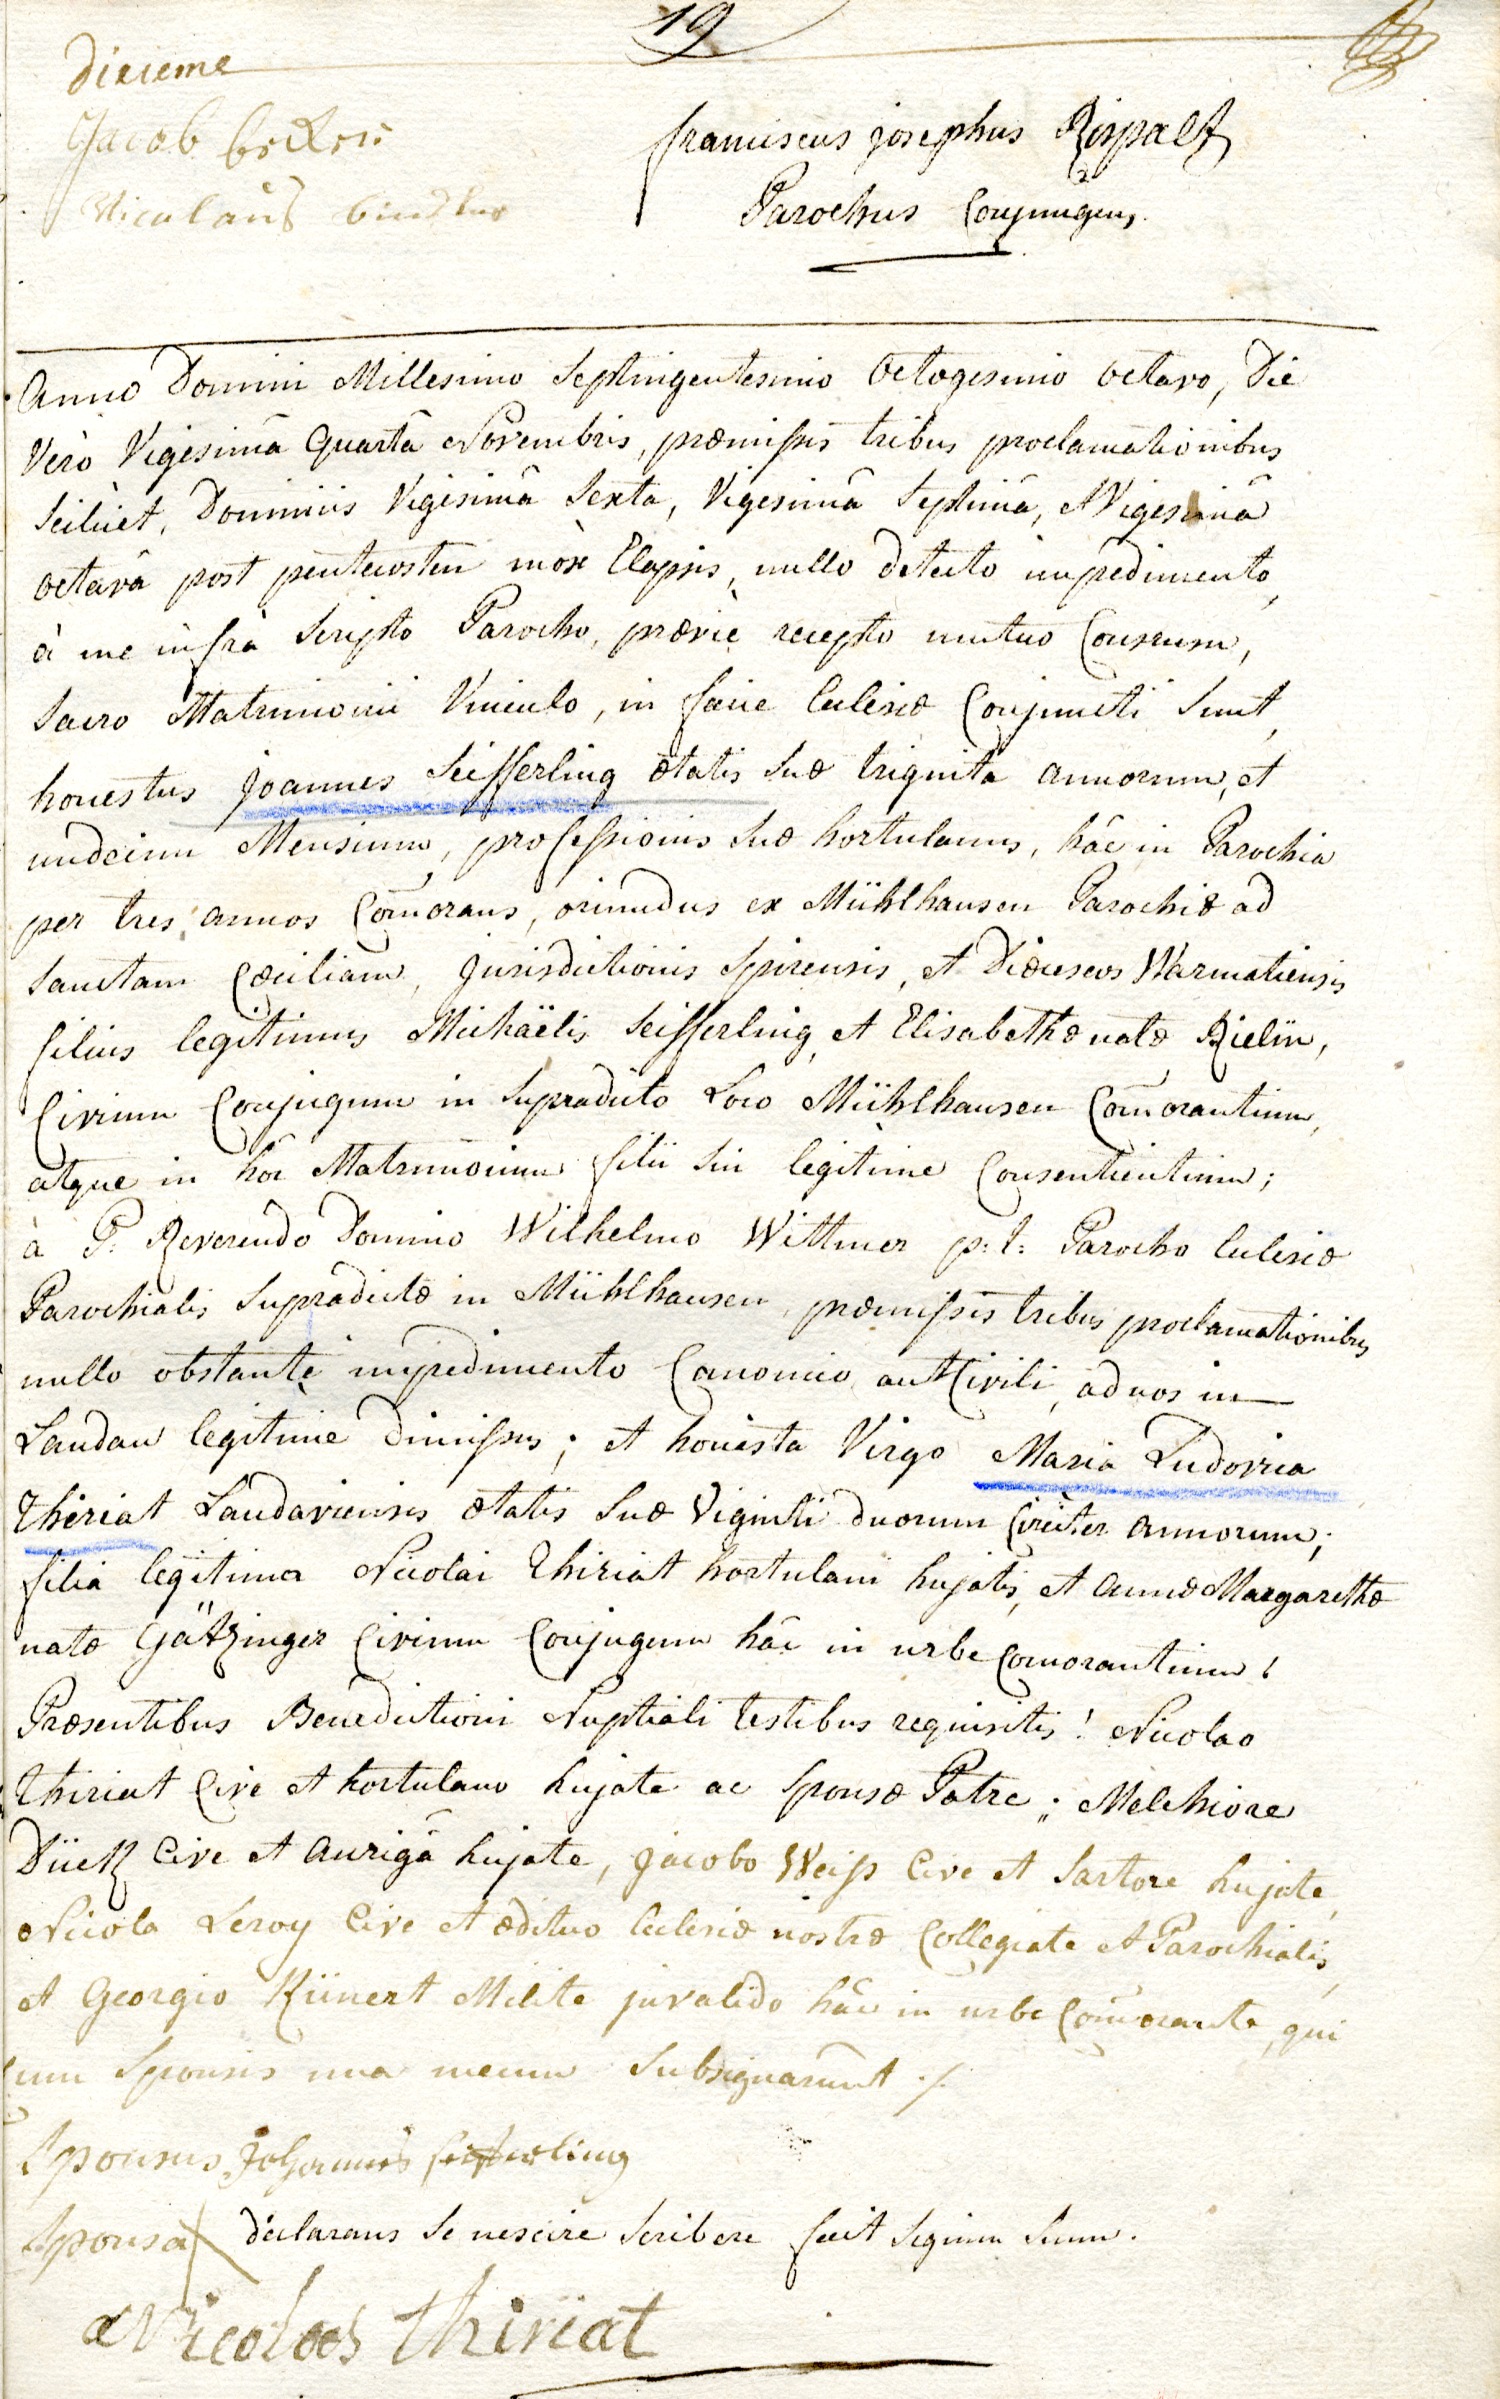 19
Dixieme
Jacob
Nicolaus
franciscus josephus Rispalt
Parochus Conjungens.
Anno Domini Millesimo Septingentesimo Octogesimo octavo, Die
Vero Vigesimâ Quartâ Novembris, præmissis tribus proclamationibus
scilicet, Dominiis Vigesimâ Sexta, Vigesimâ Septimâ, et Vigesimâ
octavâ post pentecosten mòx Elapsis, nullo detecto impedimento,
à me infrà Scripto Parocho, prævie recepto mutuo Consensu,
Sacro Matrimonii Vinculo, in facie Ecclesiæ Conjuncti Sunt,
honestus joannes Seifferling ætatis Suæ triginta annorum, et
undecim Mensium, professionis suæ hortulanus, hâc in Parochia
per tres annos Com̄orans, oriundus ex Mühlhausen Parochiæ ad
Sanctam Cæciliam, jurisdictionis Spirensis, et Diœceseos Warmatiensis
filius legitimus Michaëlis Seifferling, et Elisabethæ natæ Rielin,
Civium Conjugum in supradicto Loco Mühlhausen Com̄orantium,
atque in hoc Matrimonium filii sui legitime Consentientium;
à P: Reverendo Domino Wilhelmo Wittmer p: t: Parocho Ecclesiæ
Parochialis Supradictæ in Mühlhausen, præmissis tribus proclamationibus
nullo obstante impedimento Canonico aut Civili, ad nos in
Landau legitime dimissus; et honesta Virgo Maria Ludovica
Thiriat Landaviensis ætatis Suæ Viginti duorum Circiter annorum;
filia legitima Nicolai Thiriat hortulani hujatis, et annæ Margarethæ
natæ Gätzinger Civium Conjugum hâc in urbe Comorantium!
Præsentibus Benedictioni Nuptiali testibus requisitis! Nicolao
Thiriat Cive et hortulano hujate ac Sponsæ Patre; Melchiore
Dück Cive et aurigâ hujate, jacobo Weiss Cive et Sartore hujate,
Nicola Leroy Cive et ædituo Ecclesiæ nostræ Collegiatæ et Parochialis,
et Georgio Künert Milite invalido hâc in urbe Com̄orante, qui
cum Sponsis una mecum Subsignarunt ./.
Sponsus Johannes seifferling
Sponsa X declarans se nescire scribere fecit Signum Suum.
Nicolas thiriat